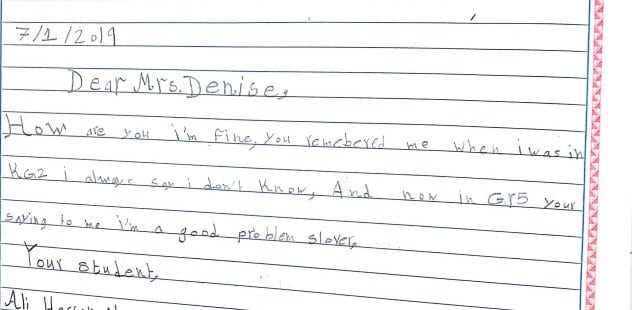 7/1/2019
Dear Mrs.Denise,
How are you i'm fine, you remebered me when i was in
KG2 i always say i don't Know, And now in Gr5 your
saying to me i'm a good problem slover,
Your student,
Ali